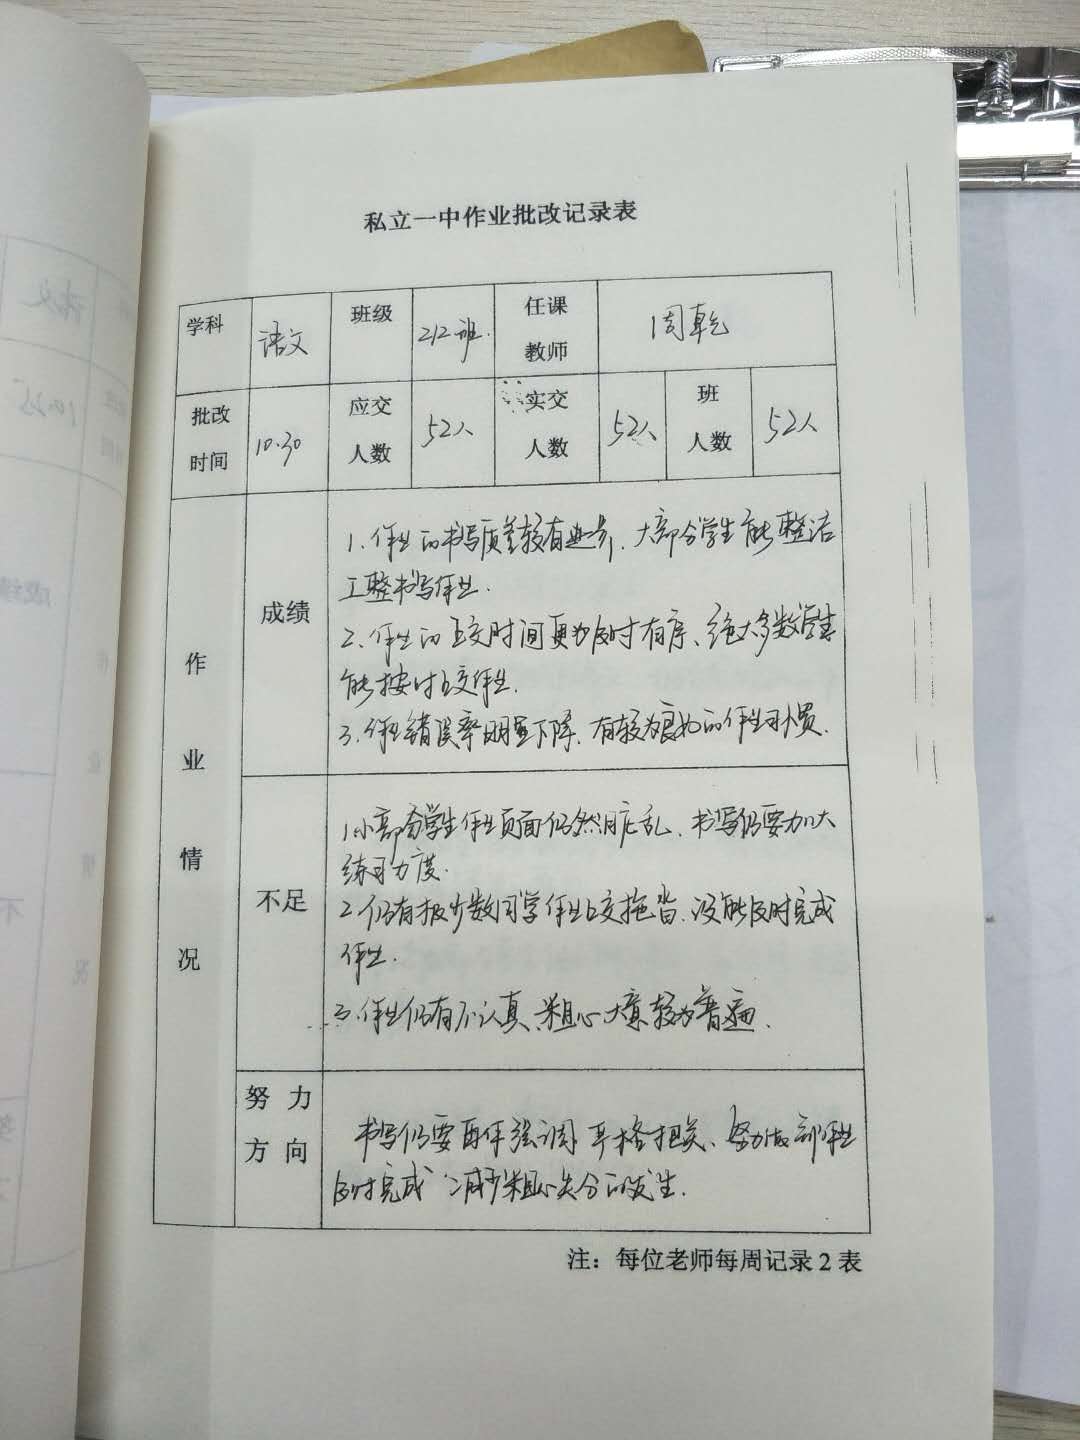 私立一中作业批改记录表
学科 语文 班级 212班. 任课教师 周乾
批改时间 10.30 应交人数 52人 实交人数 52人 班人数 52人
作业情况
成绩
1.作业的书写质量较有进步、大部分学生能整洁
工整书写作业.
2.作业的上交时间更为及时有序、绝大多数学生
能按时上交作业.
3.作业错误率明显下降、有较为良好的作业习惯.
不足
1.小部分学生作业页面仍然脏乱、书写仍要加大
练习力度.
2.仍有极少数同学作业上交拖沓、没能及时完成
作业.
3.作业仍有不认真、粗心大意较为普遍.
努力方向
书写仍要再作强调 严格把关、努力做到作业
及时完成 减少粗心失分的发生.
注：每位老师每周记录2表
语文
10.25
成绩